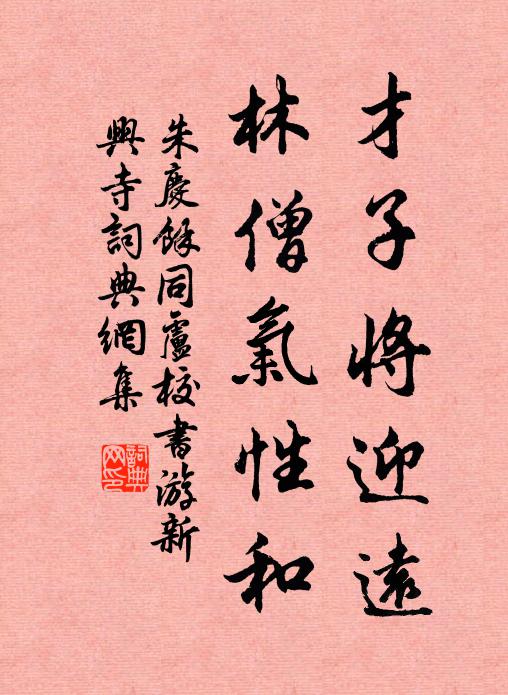 才子將迎遠
林僧氣性和
朱慶餘同盧校書游新
興寺詞典網集
詞典網印